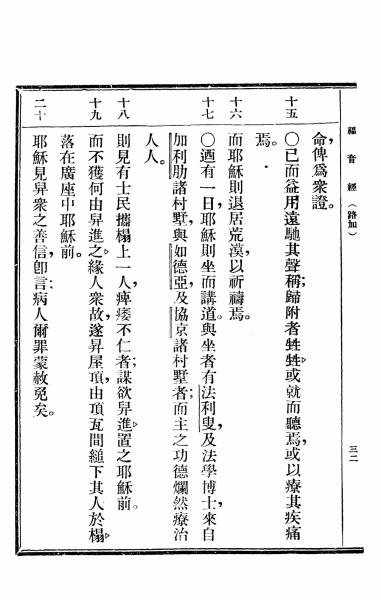 福音經（路加）
三二
命，俾爲衆證。
十五
〇已而益用遠馳其聲稱；歸附者甡甡，或就而聽焉，或以療其疾痛
焉。
十六
而耶穌則退居荒漠以祈禱焉。
十七
〇迺有一日，耶穌則坐而講道。與坐者有法利叟，及法學博士，來自
加利肋諸村墅，與如德亞，及協京諸村墅者；而主之功德爛然療治
人人。
十八
則見有士民擕榻上一人，痺痿不仁者；謀欲舁進，置之耶穌前。
十九
而不獲何由舁進之，緣人衆故，遂舁屋頂，由頂瓦間縋下其人於榻，
落在廣座中耶穌前。
二十
耶穌見舁衆之善信，卽言：病人爾罪蒙赦免矣。